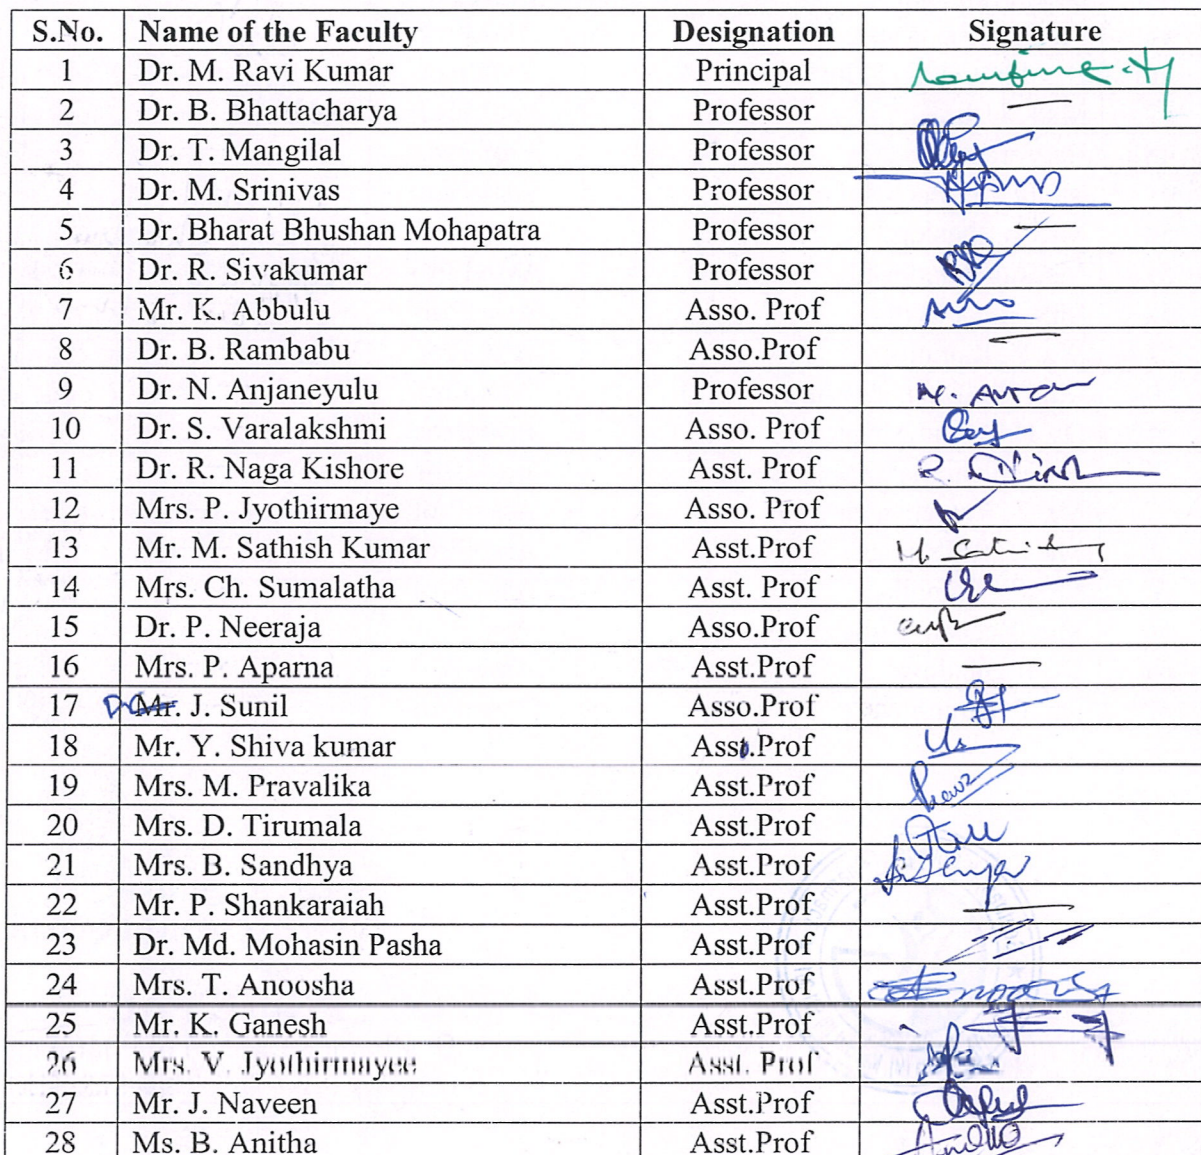 S.No. Name of the Faculty Designation Signature
1 Dr. M. Ravi Kumar Principal
2 Dr. B. Bhattacharya Professor
3 Dr. T. Mangilal Professor
4 Dr. M. Srinivas Professor
5 Dr. Bharat Bhushan Mohapatra Professor
6 Dr. R. Sivakumar Professor
7 Mr. K. Abbulu Asso. Prof
8 Dr. B. Rambabu Asso.Prof
9 Dr. N. Anjaneyulu Professor
10 Dr. S. Varalakshmi Asso. Prof
11 Dr. R. Naga Kishore Asst. Prof
12 Mrs. P. Jyothirmaye Asso. Prof
13 Mr. M. Sathish Kumar Asst.Prof
14 Mrs. Ch. Sumalatha Asst. Prof
15 Dr. P. Neeraja Asso.Prof
16 Mrs. P. Aparna Asst.Prof
17 Dr. Mr. J. Sunil Asso.Prof
18 Mr. Y. Shiva kumar Asso.Prof
19 Mrs. M. Pravalika Asst.Prof
20 Mrs. D. Tirumala Asst.Prof
21 Mrs. B. Sandhya Asst.Prof
22 Mr. P. Shankaraiah Asst.Prof
23 Dr. Md. Mohasin Pasha Asst.Prof
24 Mrs. T. Anoosha Asst.Prof
25 Mr. K. Ganesh Asst.Prof
26 Mrs. V. Jyothirmayee Asst. Prof
27 Mr. J. Naveen Asst.Prof
28 Ms. B. Anitha Asst.Prof